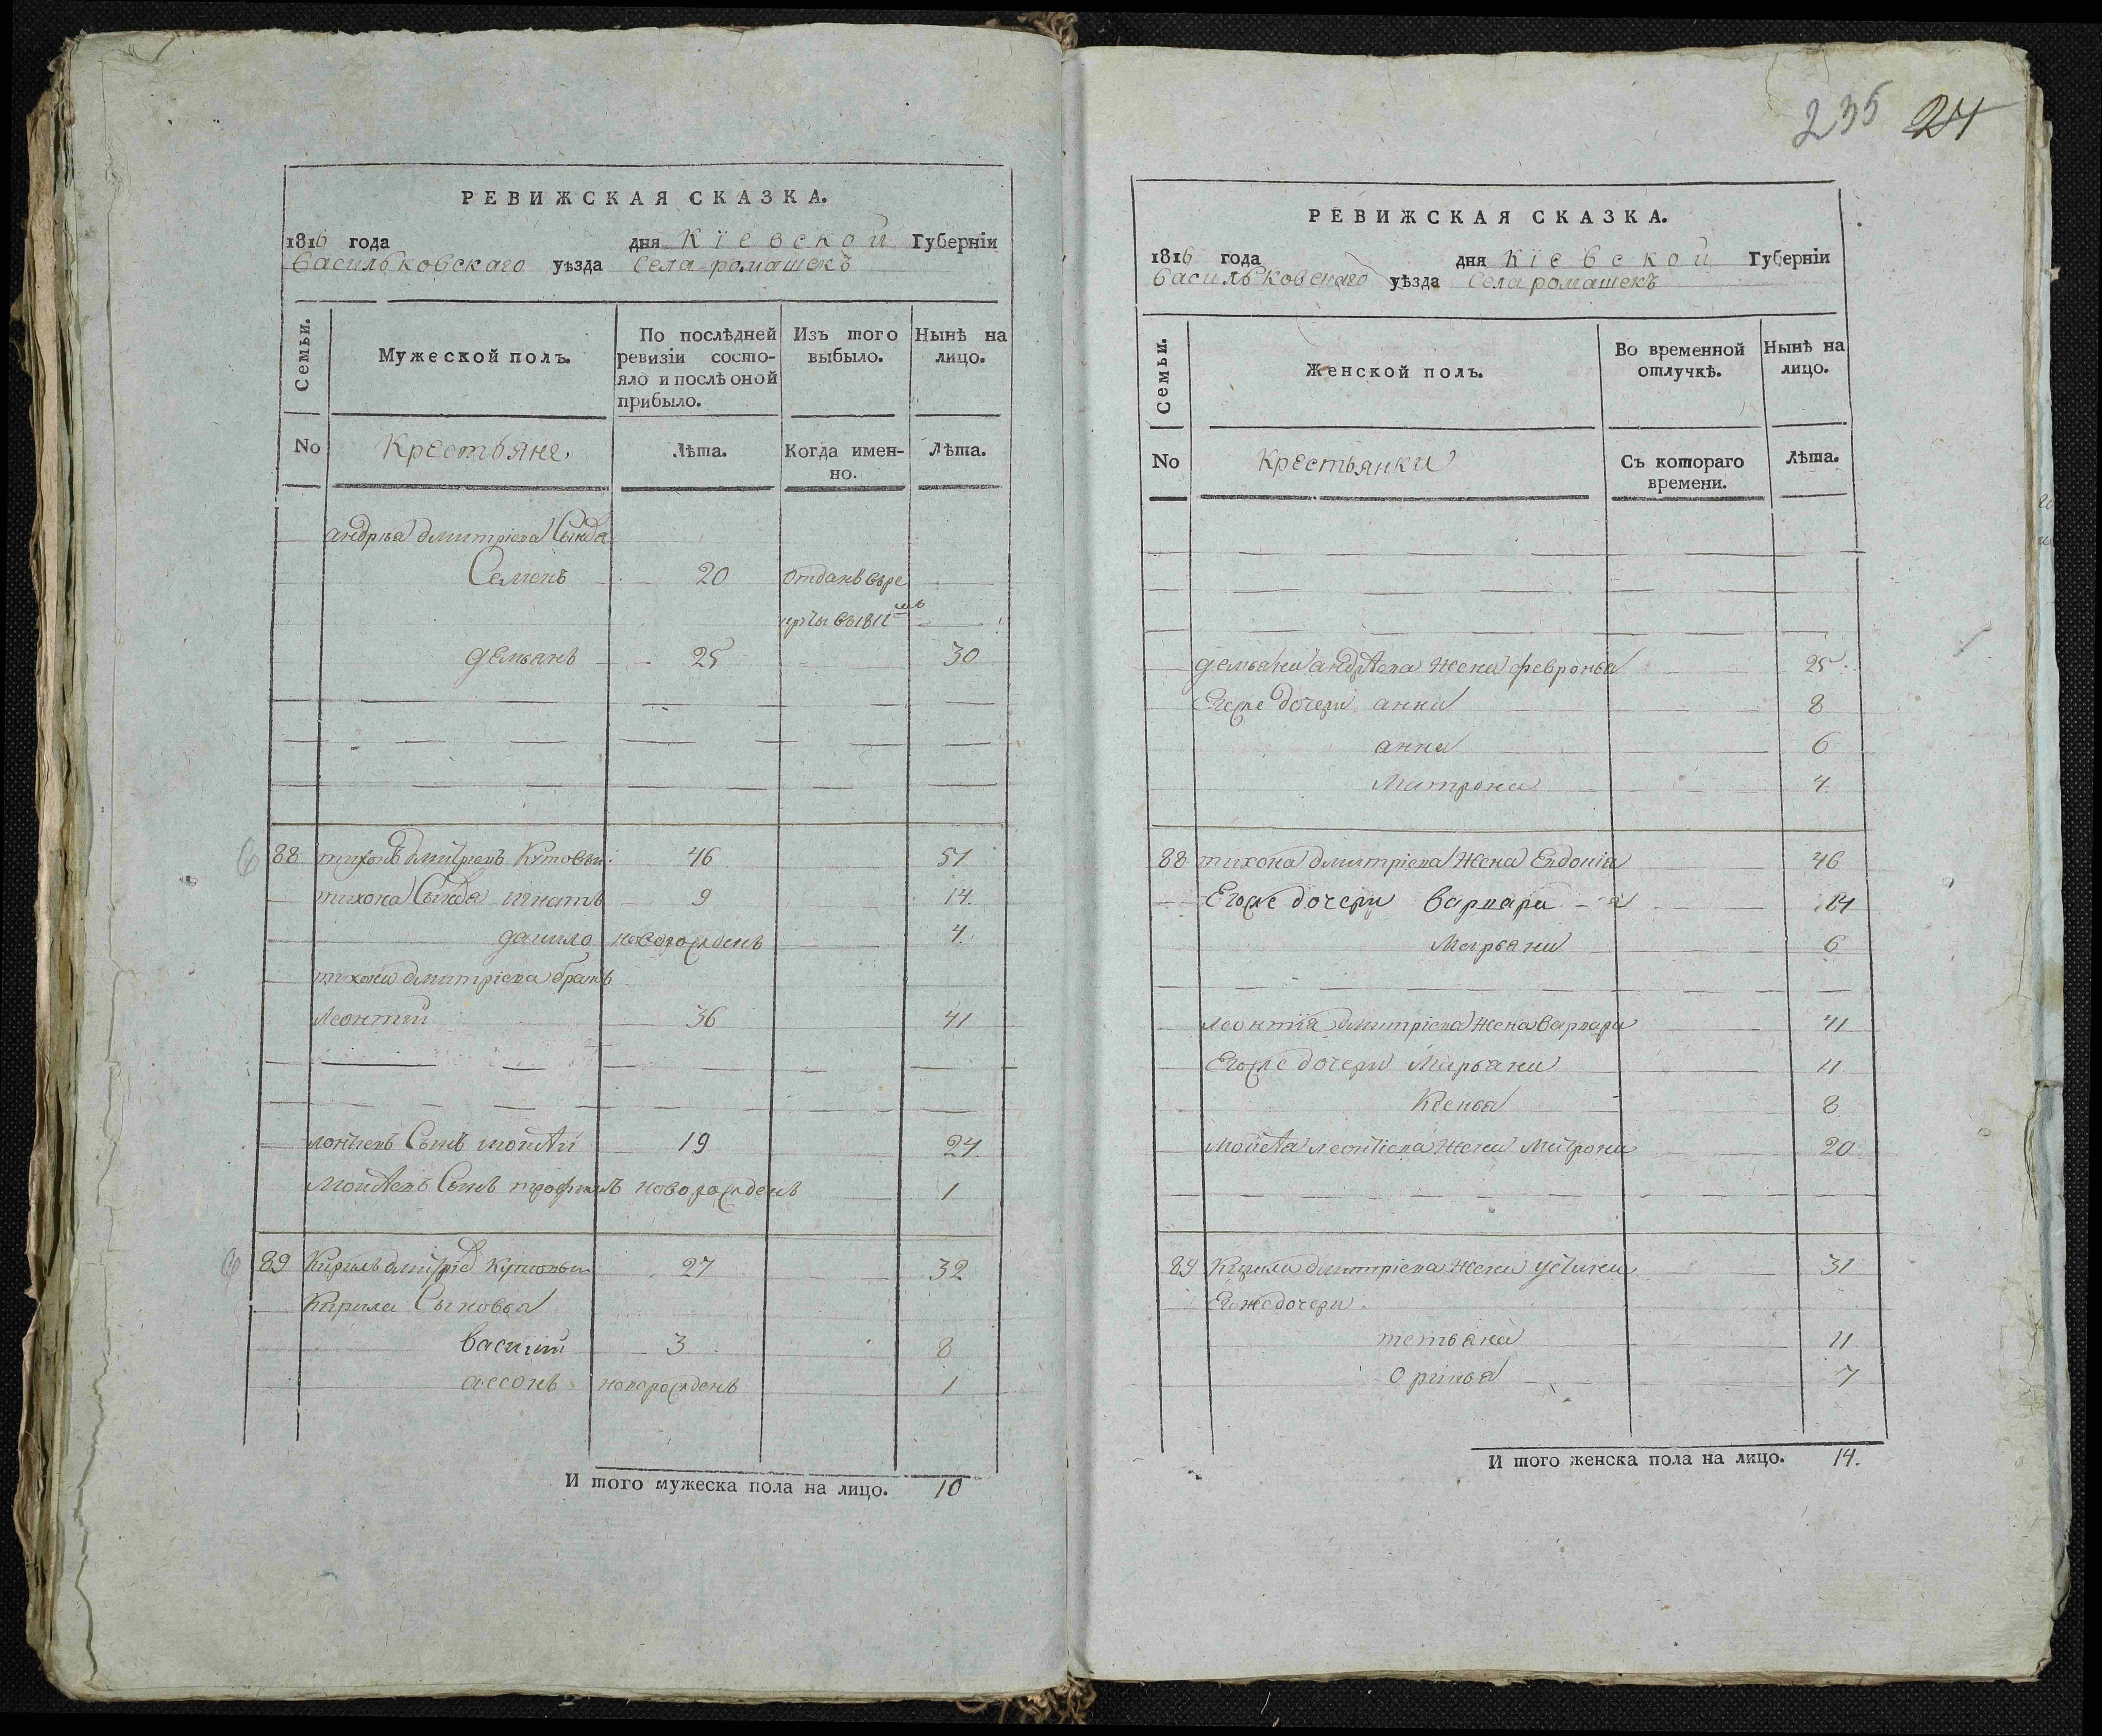 РЕВИЖСКАЯ СКАЗКА.
1816 года дня Кіевской Губерніи
Васильковскаго уѣзда села ромашекъ
Семьи.
Мужеской полъ.
По послѣдней ревизіи состо-
яло и послѣ оной прибыло.
Изъ того выбыло.
Нынѣ на лицо.
No Крестьяне Лѣта. Когда имен-
но. Лѣта.
андрѣа дмитріева Сына
Семенъ 20 отданъ въ ре
круты въ 1811мъ
демьянъ 25 30
88 тихонъ дмитріевъ Кутовый 46 51
тихона Сына игнатъ 9 14.
данило новорожденъ 4.
тихона дмитріева братъ
леонтий 36 41
Сынъ моисѣй 19 24.
моисѣевъ Сынъ трофимъ новорожденъ 1
89 Кирилъ 27 32
Кирила Сыновья
василій 3 8
новорожденъ 1
И того мужеска пола на лицо. 10
235 24
РЕВИЖСКАЯ СКАЗКА.
1816 года дня Кіевской Губерніи
Васильковскаго уѣзда Села ромашекъ
Семьи.
Женской полъ.
Во временной отлучкѣ.
Нынѣ на лицо.
No Крестьянки Съ котораго
времени. Лѣта.
демьяна андрѣева жена февронья 25
Егоже дочери анна 8
анна 6
Матрона 4.
88 тихона дмитріева жена Евдокія 46
Егоже дочери варвара 14
Марьяна 6
леонтія дмитріева жена варвара 41
Егоже дочери Марьяна 11
Ксенья 8
моисѣя леонтіева жена Матрона 20
89 Кирила дмитріева жена устинья 31
Егоже дочери
тетьяна 11
оринья 7
И того женска пола на лицо. 14.